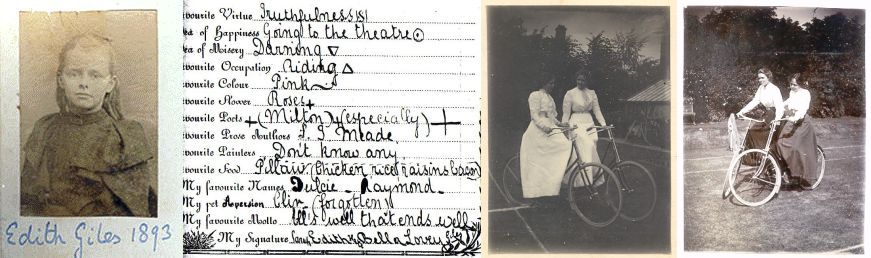 Edith Giles 1893
avourite Virtue Truthfulness
ea of Happiness Going to the theatre
ea of Misery Darning
avourite Occupation Riding
avourite Colour Pink
avourite Flower Roses
avourite Poets (Milton) (especially)
avourite Prose Authors L. J Meade
avourite Painters Don't know any
avourite Food Pillaw (Chicken rice raisins bacon)
My favourite Names Dulcie - Raymond
My pet Aversion (forgotten)
My favourite Motto All's well that ends well
My Signature Edith Bella